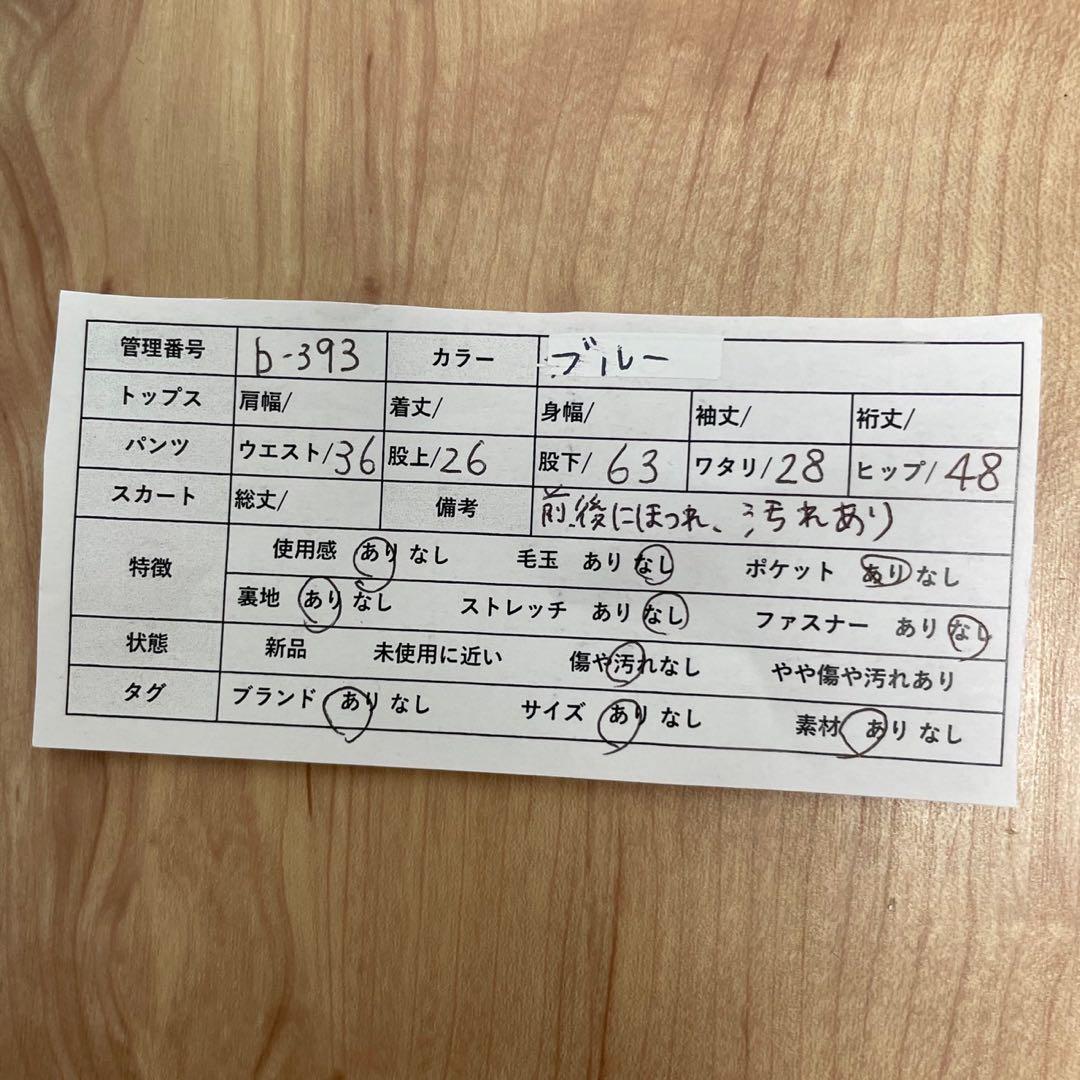 管理番号 b-393 カラー ブルー
トップス 肩幅/ 着丈/ 身幅/ 袖丈/ 裄丈/
パンツ ウエスト/36 股上/26 股下/63 ワタリ/28 ヒップ/48
スカート 総丈/ 備考 前後にほつれ、汚れあり
特徴 使用感 あり なし 毛玉 あり なし ポケット あり なし
裏地 あり なし ストレッチ あり なし ファスナー あり なし
状態 新品 未使用に近い 傷や汚れなし やや傷や汚れあり
タグ ブランド あり なし サイズ あり なし 素材 あり なし